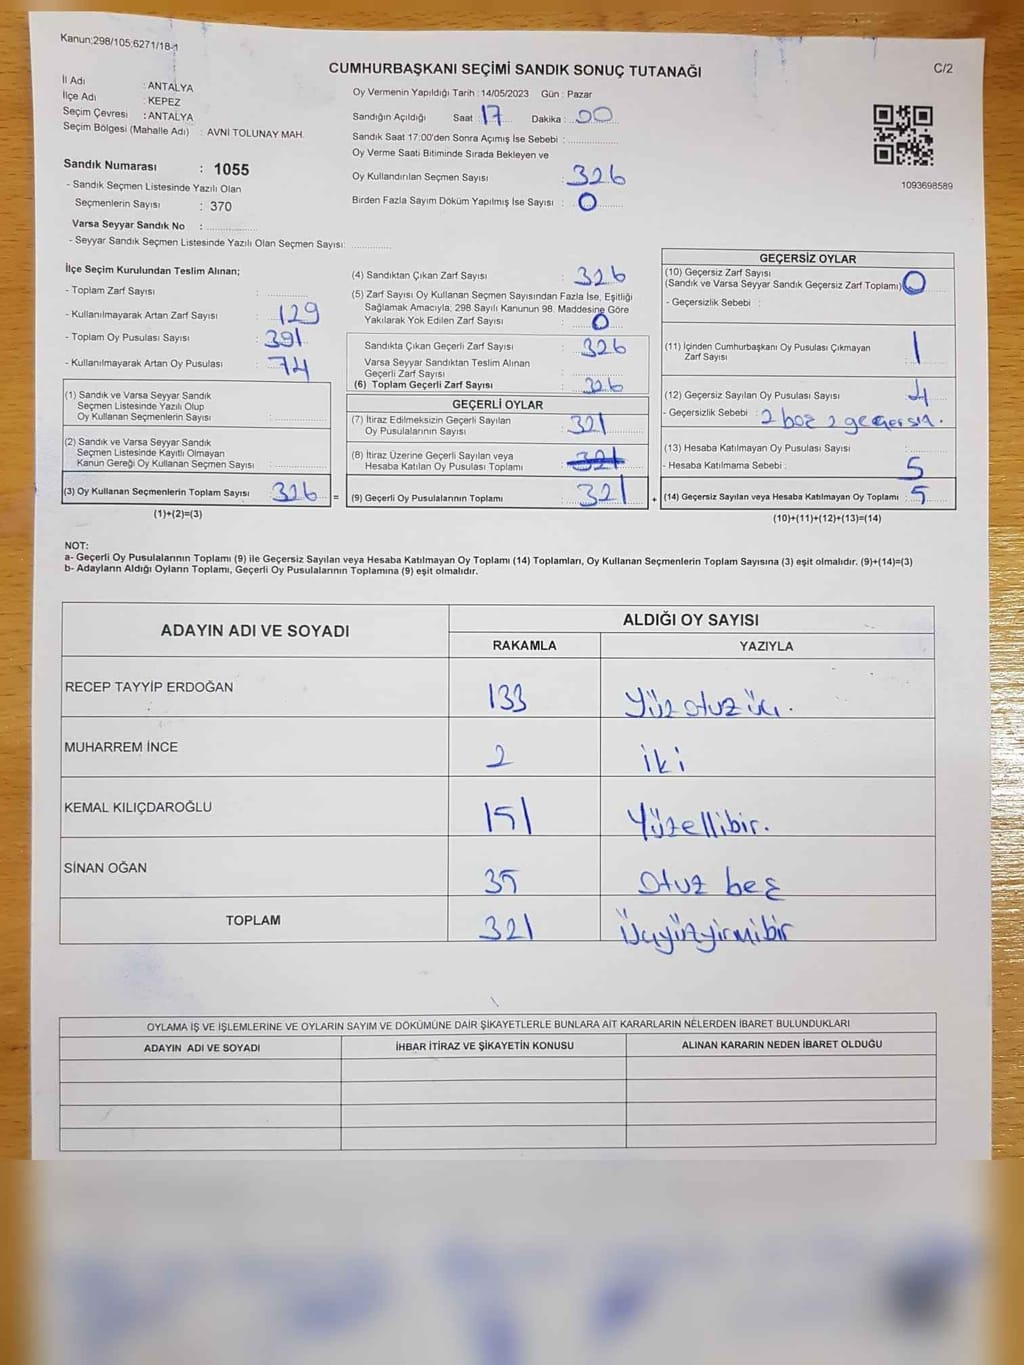 Kanun:298/105;6271/18-1
CUMHURBAŞKANI SEÇİMİ SANDIK SONUÇ TUTANAĞI
C/2
İl Adı : ANTALYA
İlçe Adı : KEPEZ
Seçim Çevresi : ANTALYA
Seçim Bölgesi (Mahalle Adı) : AVNİ TOLUNAY MAH.
Sandık Numarası : 1055
- Sandık Seçmen Listesinde Yazılı Olan
Seçmenlerin Sayısı : 370
Varsa Seyyar Sandık No :
- Seyyar Sandık Seçmen Listesinde Yazılı Olan Seçmen Sayısı:
Oy Vermenin Yapıldığı Tarih : 14/05/2023 Gün : Pazar
Sandığın Açıldığı Saat : 17 Dakika : 00
Sandık Saat 17:00'den Sonra Açımış İse Sebebi :
Oy Verme Saati Bitiminde Sırada Bekleyen ve
Oy Kullandırılan Seçmen Sayısı : 326
Birden Fazla Sayım Döküm Yapılmış İse Sayısı : 0
1093698589
İlçe Seçim Kurulundan Teslim Alınan;
- Toplam Zarf Sayısı :
- Kullanılmayarak Artan Zarf Sayısı : 129
- Toplam Oy Pusulası Sayısı : 391
- Kullanılmayarak Artan Oy Pusulası : 74
(1) Sandık ve Varsa Seyyar Sandık
Seçmen Listesinde Yazılı Olup
Oy Kullanan Seçmenlerin Sayısı :
(2) Sandık ve Varsa Seyyar Sandık
Seçmen Listesinde Kayıtlı Olmayan
Kanun Gereği Oy Kullanan Seçmen Sayısı :
(3) Oy Kullanan Seçmenlerin Toplam Sayısı : 326 =
(1)+(2)=(3)
(4) Sandıktan Çıkan Zarf Sayısı : 326
(5) Zarf Sayısı Oy Kullanan Seçmen Sayısından Fazla İse, Eşitliği
Sağlamak Amacıyla, 298 Sayılı Kanunun 98. Maddesine Göre
Yakılarak Yok Edilen Zarf Sayısı : 0
Sandıkta Çıkan Geçerli Zarf Sayısı : 326
Varsa Seyyar Sandıktan Teslim Alınan
Geçerli Zarf Sayısı :
(6) Toplam Geçerli Zarf Sayısı : 326
GEÇERLİ OYLAR
(7) İtiraz Edilmeksizin Geçerli Sayılan
Oy Pusulalarının Sayısı : 321
(8) İtiraz Üzerine Geçerli Sayılan veya
Hesaba Katılan Oy Pusulası Toplamı : 321
(9) Geçerli Oy Pusulalarının Toplamı : 321 +
GEÇERSİZ OYLAR
(10) Geçersiz Zarf Sayısı
(Sandık ve Varsa Seyyar Sandık Geçersiz Zarf Toplamı) : 0
- Geçersizlik Sebebi :
(11) İçinden Cumhurbaşkanı Oy Pusulası Çıkmayan
Zarf Sayısı : 1
(12) Geçersiz Sayılan Oy Pusulası Sayısı : 4
- Geçersizlik Sebebi : 2 boş 2 geçersin.
(13) Hesaba Katılmayan Oy Pusulası Sayısı :
- Hesaba Katılmama Sebebi : 5
(14) Geçersiz Sayılan veya Hesaba Katılmayan Oy Toplamı : 5
(10)+(11)+(12)+(13)=(14)
NOT:
a- Geçerli Oy Pusulalarının Toplamı (9) ile Geçersiz Sayılan veya Hesaba Katılmayan Oy Toplamı (14) Toplamları, Oy Kullanan Seçmenlerin Toplam Sayısına (3) eşit olmalıdır. (9)+(14)=(3)
b- Adayların Aldığı Oyların Toplamı, Geçerli Oy Pusulalarının Toplamına (9) eşit olmalıdır.
ADAYIN ADI VE SOYADI
ALDIĞI OY SAYISI
RAKAMLA YAZIYLA
RECEP TAYYİP ERDOĞAN 133 Yüz otuz üç.
MUHARREM İNCE 2 iki
KEMAL KILIÇDAROĞLU 151 Yüzellibir.
SİNAN OĞAN 35 Otuz beş
TOPLAM 321 üçyüzyirmibir
OYLAMA İŞ VE İŞLEMLERİNE VE OYLARIN SAYIM VE DÖKÜMÜNE DAİR ŞİKAYETLERLE BUNLARA AİT KARARLARIN NELERDEN İBARET BULUNDUKLARI
ADAYIN ADI VE SOYADI İHBAR İTİRAZ VE ŞİKAYETİN KONUSU ALINAN KARARIN NEDEN İBARET OLDUĞU